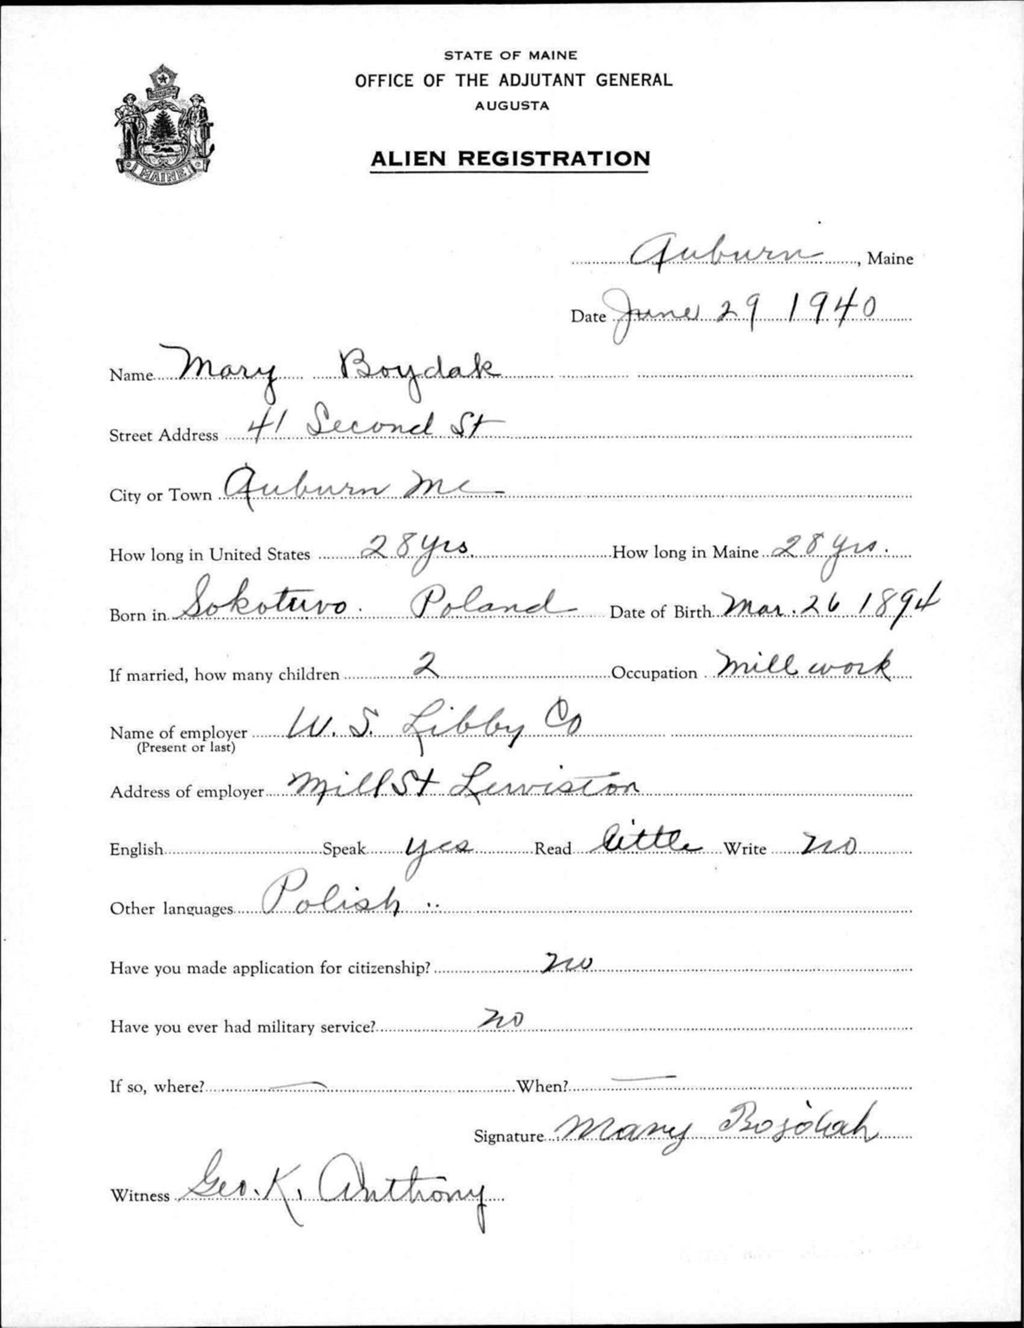 STATE OF MAINE
OFFICE OF THE ADJUTANT GENERAL
AUGUSTA
ALIEN REGISTRATION
MAINE
Auburn, Maine
Date June 29 1940
Name Mary Boydak
Street Address 41 Second St
City or Town Auburn Me
How long in United States 28 yrs. How long in Maine 28 yrs.
Born in Sokotuvo. Poland Date of Birth Mar. 26 1894
If married, how many children 2 Occupation Mill work
Name of employer W. S. Libby Co
(Present or last)
Address of employer Mill St Lewiston
English Speak yes Read little Write no
Other languages Polish
Have you made application for citizenship? no
Have you ever had military service? no
If so, where? — When? —
Signature Mary Bojdak
Witness Geo. K. Anthony